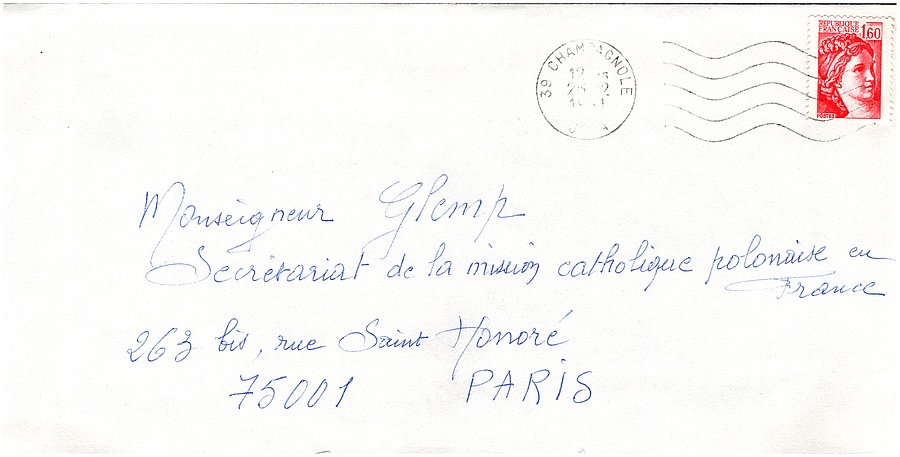 RÉPUBLIQUE
FRANÇAISE 1,60
POSTES
39 CHAMPAGNOLE
Monseigneur Glemp
Secrétariat de la mission catholique polonaise en
France
263 bis, rue Saint Honoré
75001 PARIS